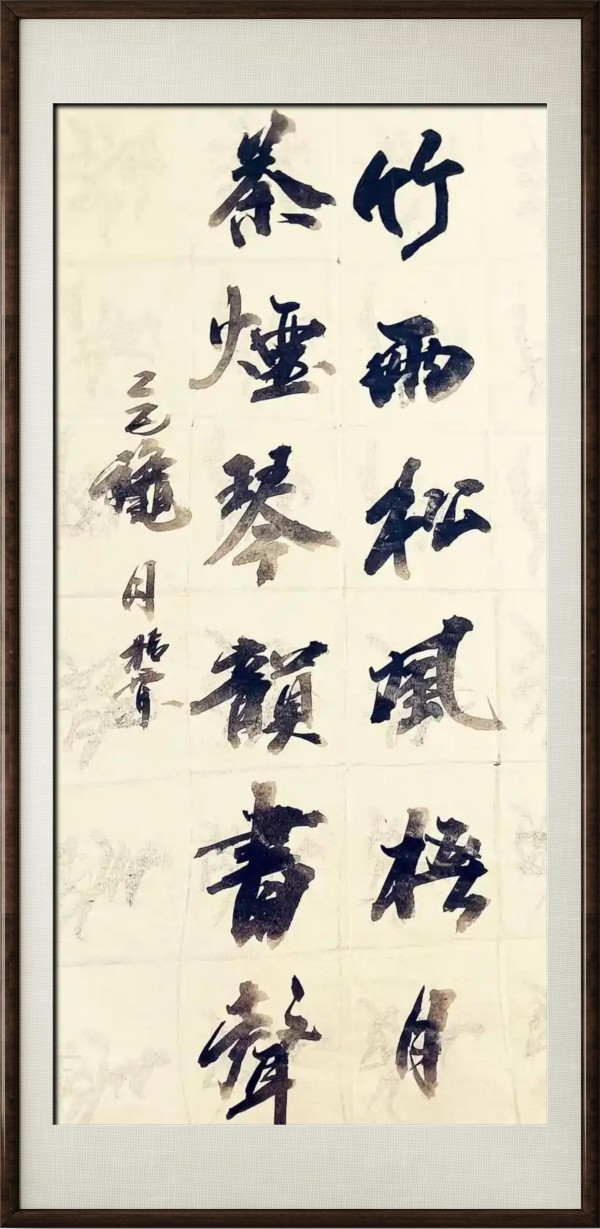 竹雨松風梧月
茶煙琴韻書聲
乙巳龝月